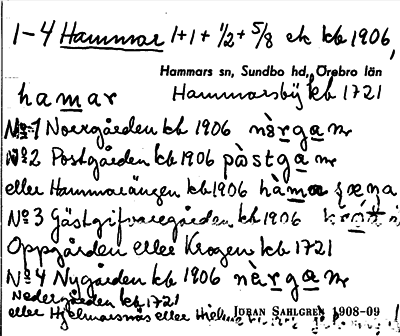 1-4 Hammar 1+1+ 1/2+ 5/8 ek kb 1906,
Hammars sn, Sundbo hd, Örebro län
hamar Hammarsbÿ kb 1721
No 1 Norrgården kb 1906 nàrgan
No 2 Postgården kb 1906 pàstgan
eller Hammarängen kb 1906 hàmar
No 3 Gästgifvaregården kb 1906
Oppgården eller Krogen kb 1721
No 4 Nygården kb 1906
Nedergården kb 1721
eller Hjelmarsnäs eller JÖRAN SAHLGREN 1908-09